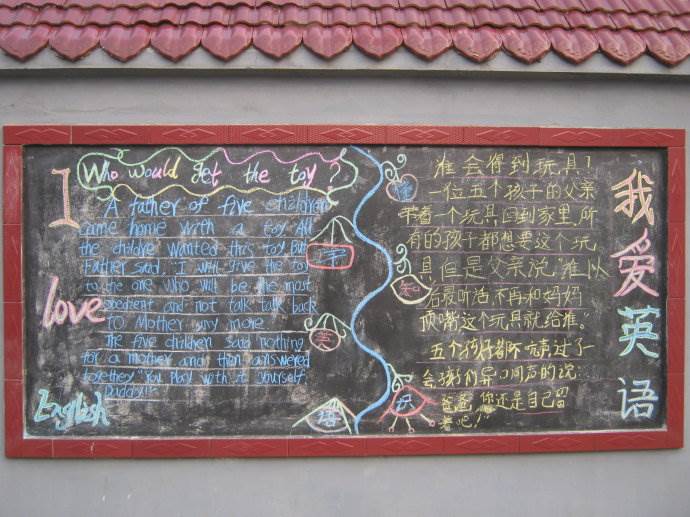 I
love
English
Who would get the toy?
A father of five children
came home with a toy All
the childre wanted this toy But
Father said: "I will give the toy
to the one who will be the most
obedient and not talk talk back
To Mother any more
The five children said nothing
for a mother and then answered
together "You play with it yourself
Daddy!"
学
英
语
知
识
谁会得到玩具?
一位五个孩子的父亲
带着一个玩具回到家里,所
有的孩子都想要这个玩
具但是父亲说"谁以
后最听话,不再和妈妈
顶嘴这个玩具就给谁."
五个孩子都不吭声过了一
会孩们异口同声的说:
爸爸,你还是自己留
着吧!"
我爱英语